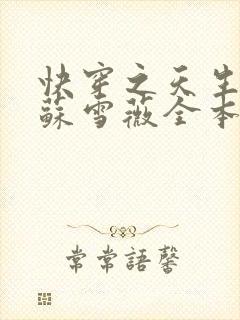 快穿之天生
蘇雪薇全本
常常語馨